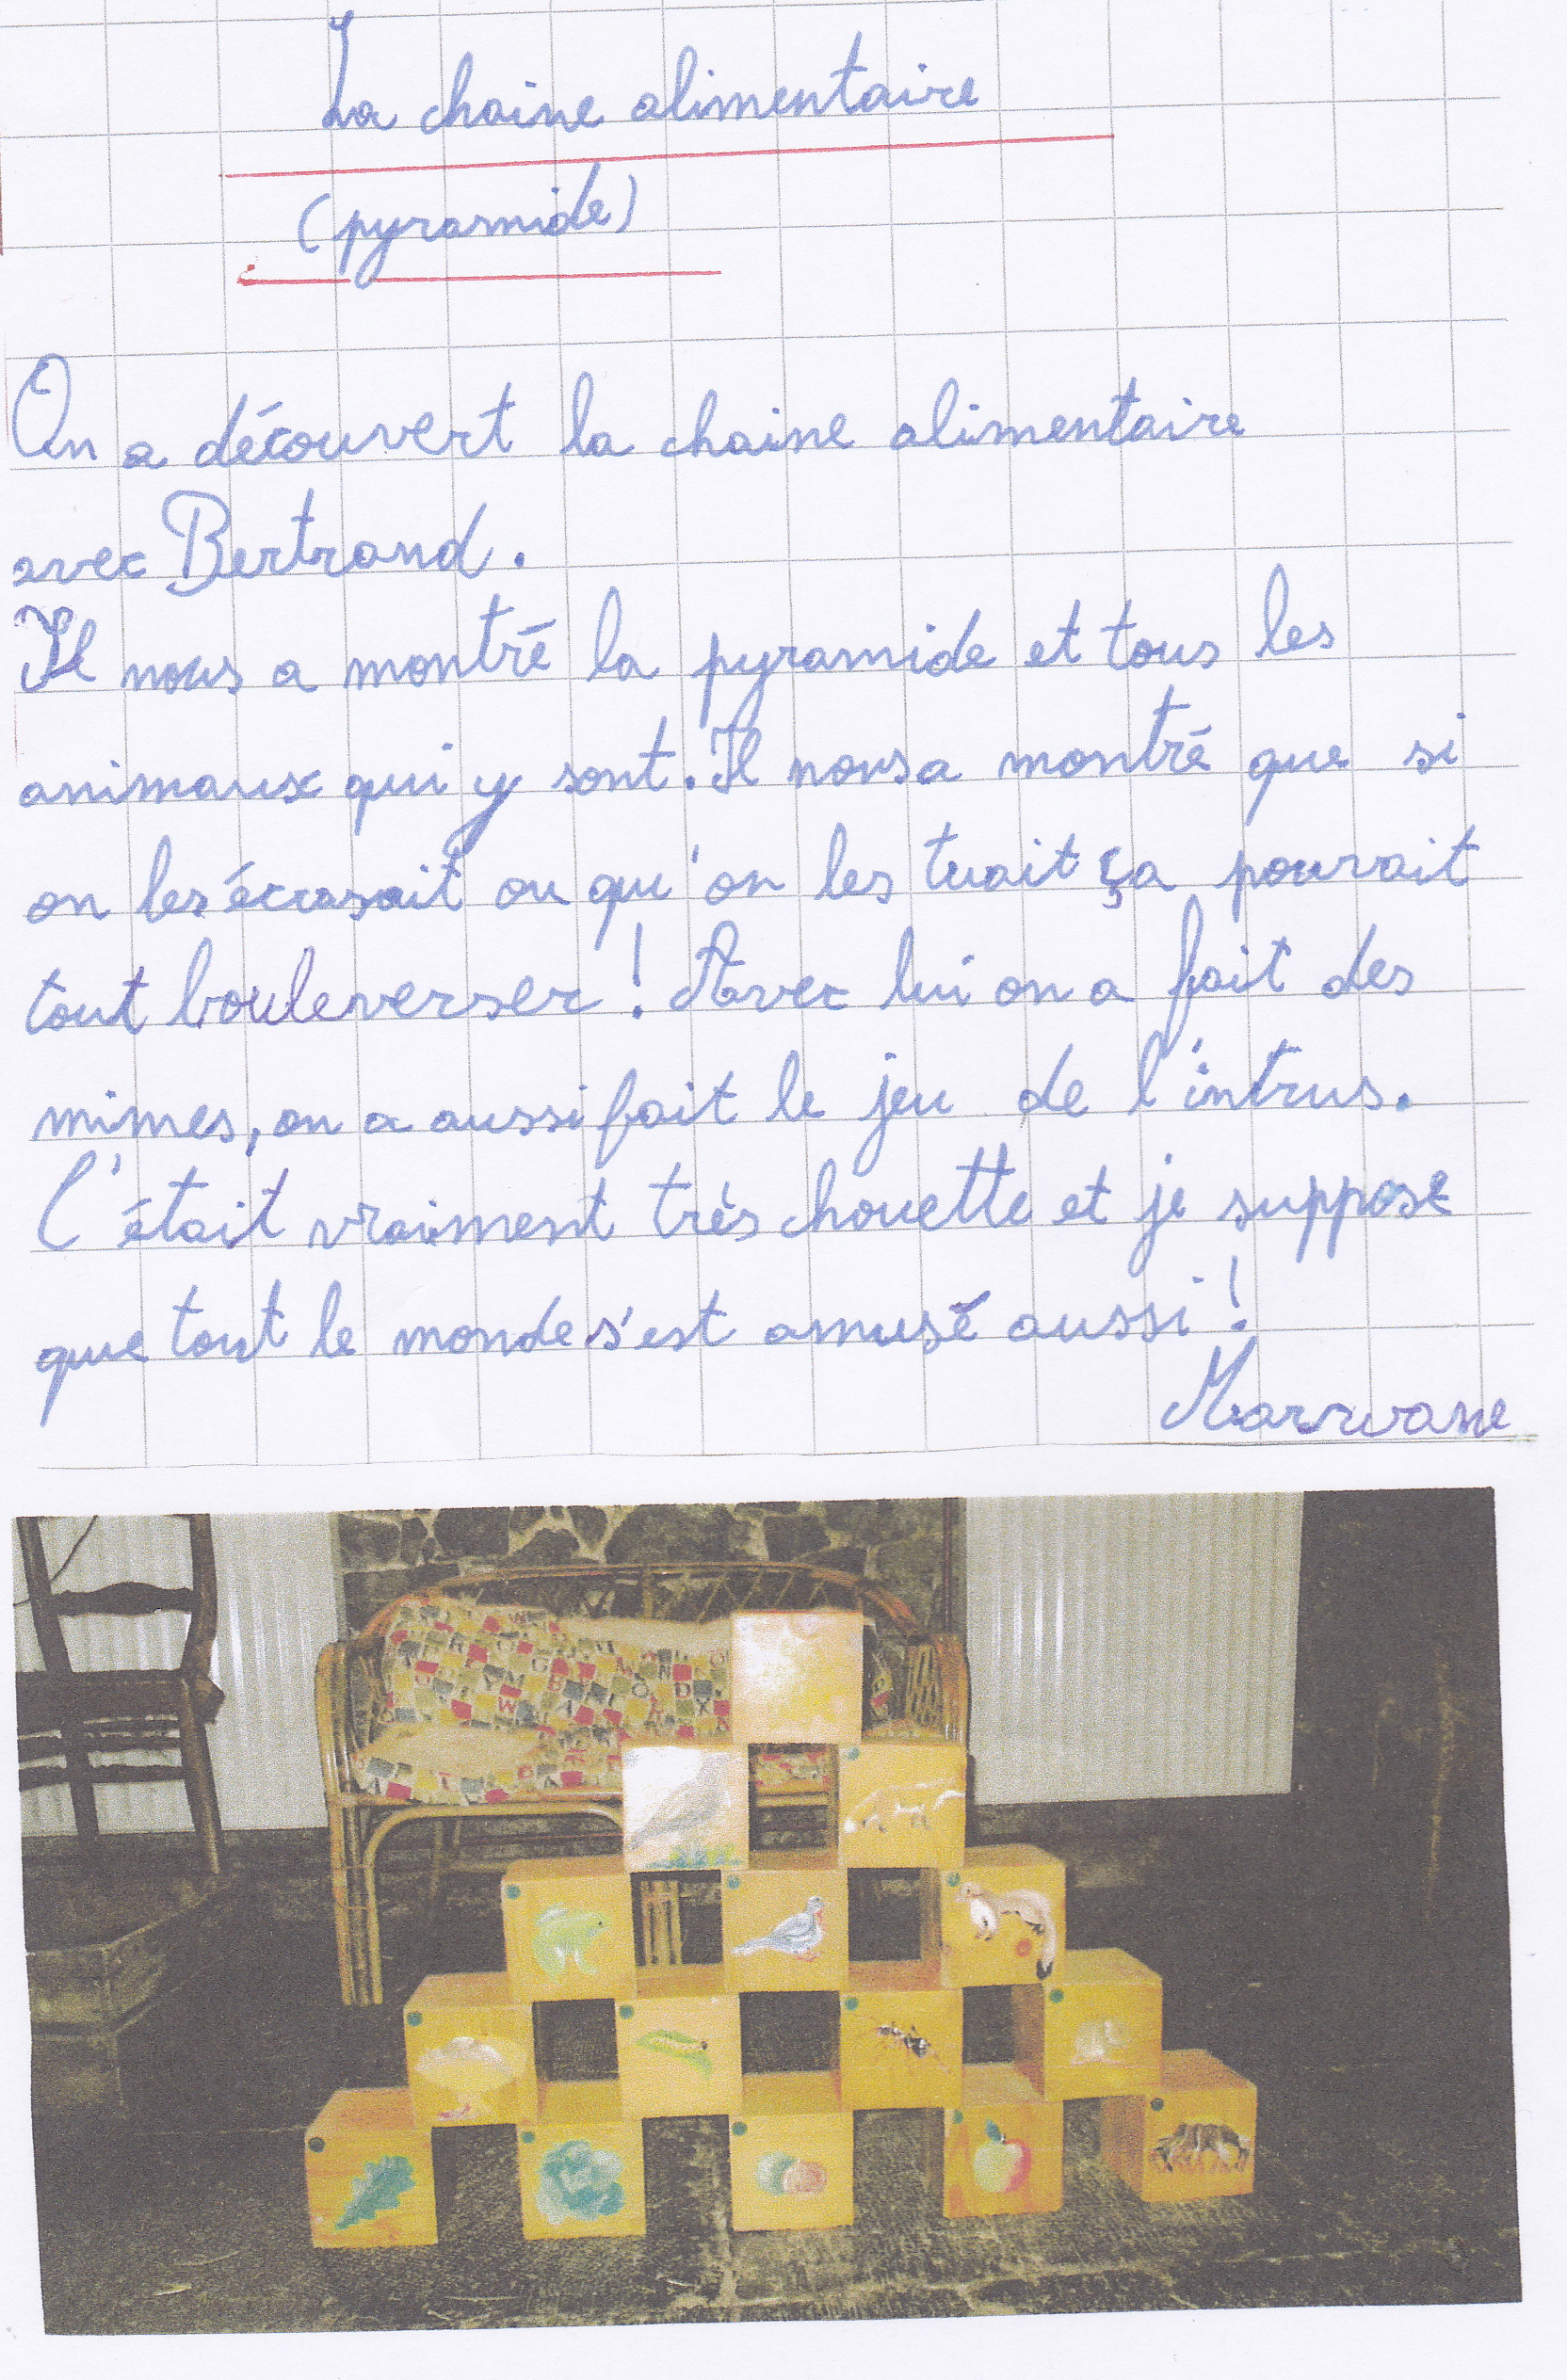 La chaine alimentaire
(pyramide)
On a découvert la chaine alimentaire
avec Bertrand.
Il nous a montré la pyramide et tous les
animaux qui y sont. Il nous a montré que si
on les écrasait ou qu'on les tuait ça pourait
tout bouleverser ! Avec lui on a fait des
mimes, on a aussi fait le jeu de l'intrus.
C'était vraiment très chouette et je suppose
que tout le monde s'est amusé aussi !
Marwane